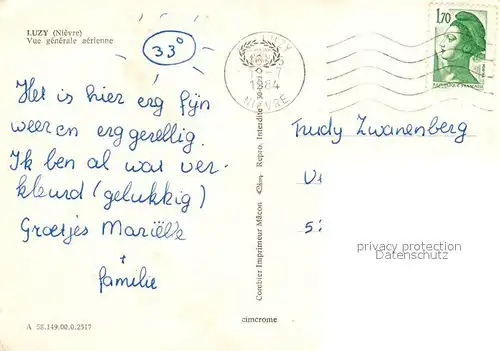 LUZY (Nièvre)
Vue générale aérienne
33°
Het is hier erg fijn
weer en erg gezellig.
Ik ben al wat ver-
kleurd (gelukkig)
Groetjes Mariëlle
+
familie
Trudy Zwanenberg
LUZY
1984
NIÈVRE
1,70
REPUBLIQUE FRANÇAISE
Combier Imprimeur Mâcon Repro. Interdite
privacy protection
Datenschutz
cimcrome
A 58.149.00.0.2517